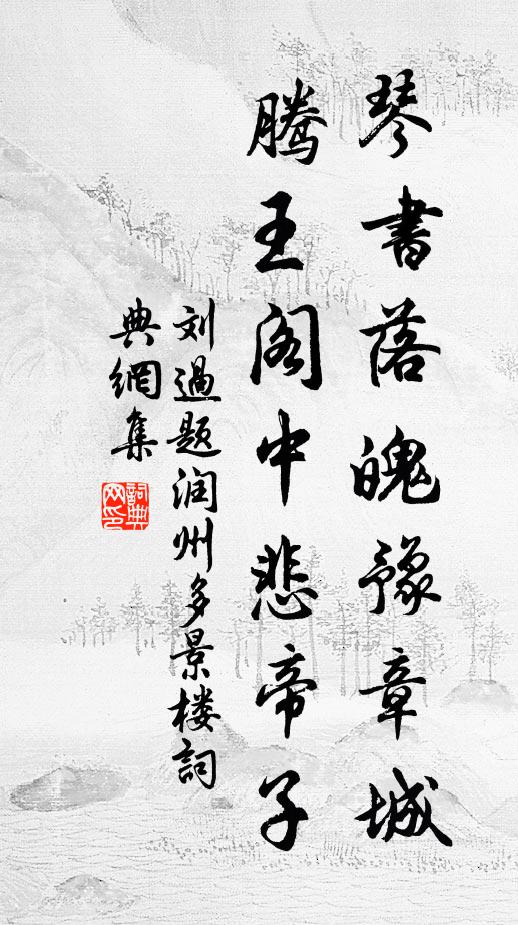 琴書落魄豫章城
騰王阁中悲帝子
刘過题润州多景楼詞
典網集
詞典网印